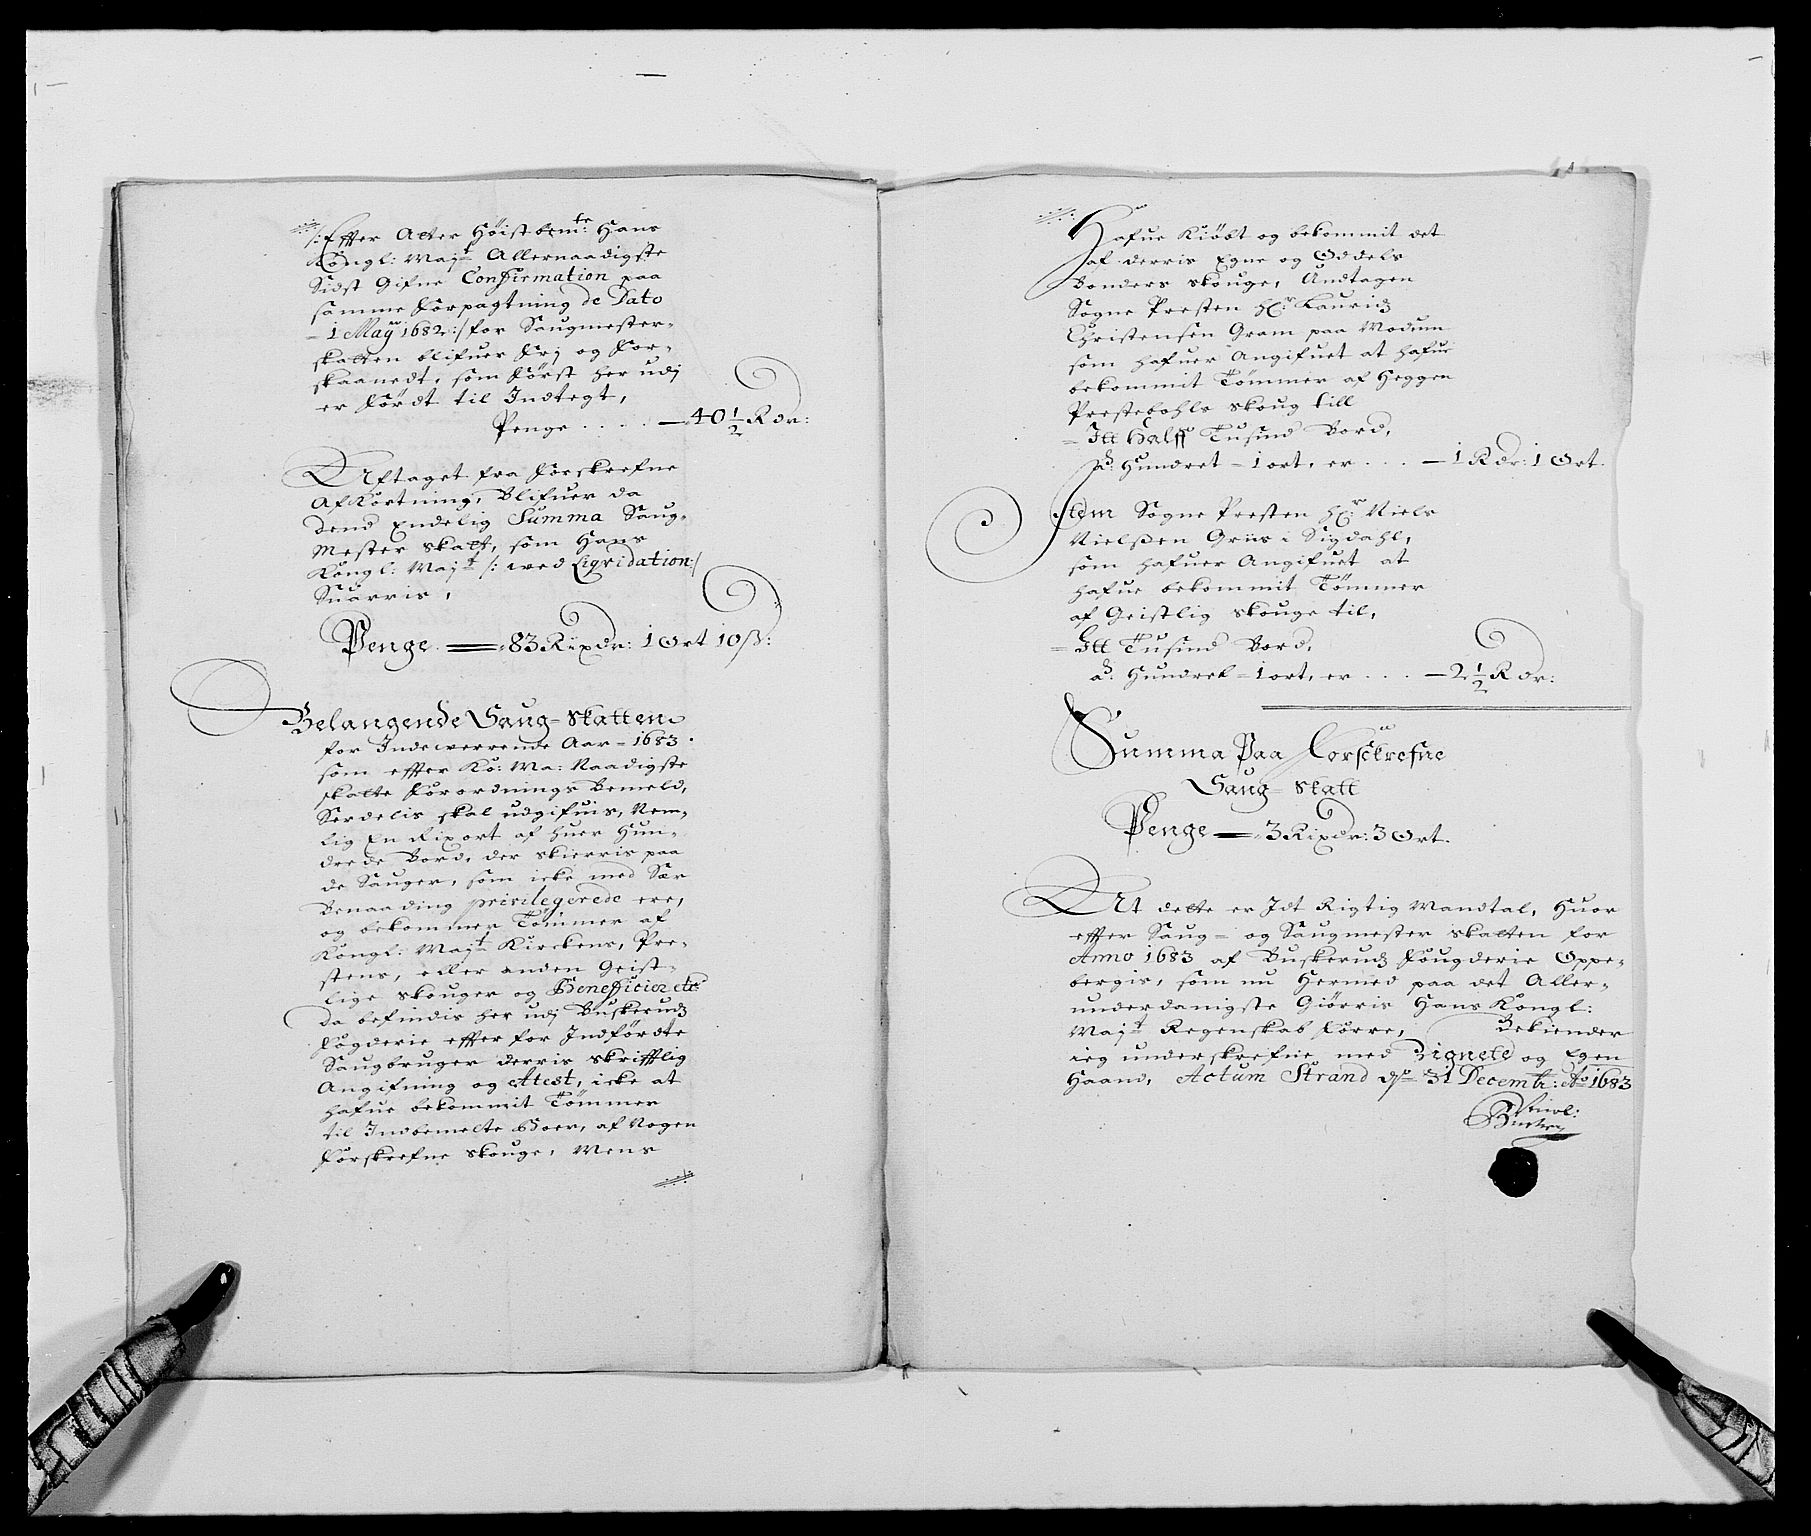 /: Effter Alter Høistbemte: Hans
Kongl: Majts Allernaadigste
Sidst Gifne Confirmation paa
samme Forpagtning de Dato
- 1 Maÿ 1682 :/ for Saugmester-
skatten blifuer frj og For-
skaanedt, som først her udj
er Fördt til Indtegt,
Penge . . . . — 40 1/2 Rdr:
Aftaget fra Forskrefne
Afkortning, Blifuer da
dend Endelig Summa Saug-
Mester skatt, som Hans
Kongl: Majt /: wed Liqvidation :/
Suarris,
Penge = 83 Rixdr: 1 Ort 10 ß:
Belangende Saug-skatten
for Indewerrende Aar - 1683.
som effter Ko: Ma: Naadigste
skatte Forordnings Bemeld,
Serdelis skal udgifuis, Nem-
lig En Rixort af huer Hun-
drede Bord, der skierris paa
de Sauger, som icke med Sær
Benaading privilegerede ere,
og bekommer Tømmer af
Kongl: Majts Kirckens, Pre-
stens, eller anden Geist-
lige skouger og Beneficier etc
Da befindis her udj Buskeruds
Fogderie effter for Indfördte
Saugbruger derris skrifftlig
Angifning og Attest, icke at
hafue bekommit Tømmer
til Indbemelte Boer, af Nogen
Forskrefne skouge, Mens
Hafue Kiöbt og bekommit det
af derris Egne og Oddels
Bonders skouge, Undtagen
Sogne Presten hr: Lauridz
Christensen Gram paa Modum
som hafuer Angifuet at hafue
bekommit Tömmer af Heggen
Prestebohls skoug till
- Itt Halff Tusind Bord,
ad. Hundret - 1 ort, er . . . — 1 Rdr: 1 Ort.
Item Sogne Presten hr: Niels
Nielßen Griis i Sigdahl,
som hafuer Angifuet at
hafue bekommit Tömmer
af Geistlig skouge til,
- Itt Tusind Bord,
ad. Hundret - 1 ort, er . . . — 2 1/2 Rdr:
Summa Paa Forschrefne
Saug- skatt
Penge = 3 Rixdr: 3 Ort.
At dette er Idt Rigtig Mandtal, Huor
effter Saug- og Saugmester skatten for
Anno 1683 af Buskeruds Fougderie Oppe-
bergis, som nu Hermed paa det Aller-
underdanigste Giörris Hans Kongl:
Majts Regenskab Forre, Bekiender
ieg underskrefne med Zignete og Egen
Haand, Actum Strand ds 31 Decembr: Ao 1683